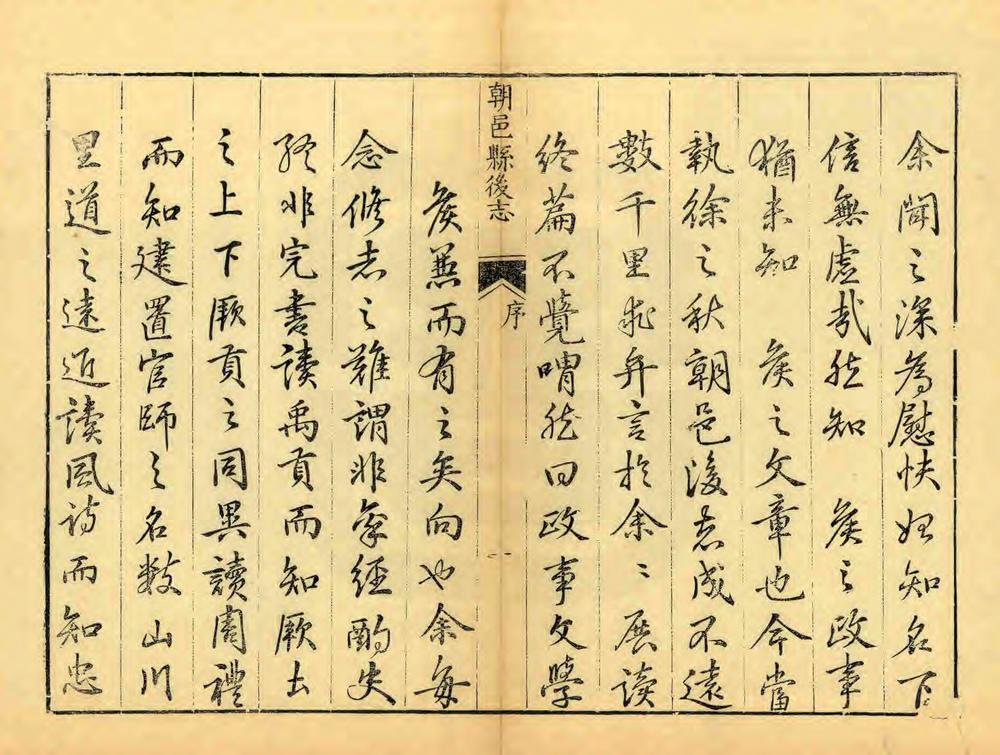 余聞之深為慰快始知名下
信無虛哉然知　侯之政事
猶未知　侯之文章也今當
執徐之秋朝邑後志成不遠
數千里乖弁言於余〻展讀
終篇不覺喟然曰政事文學
朝邑縣後志
序
侯兼而有之矣向也余每
念修志之難謂非參經酌史
終非完書讀禹貢而知厥土
之上下厥貢之同異讀周禮
而知建置官師之名數山川
里道之遠近讀風詩而知忠